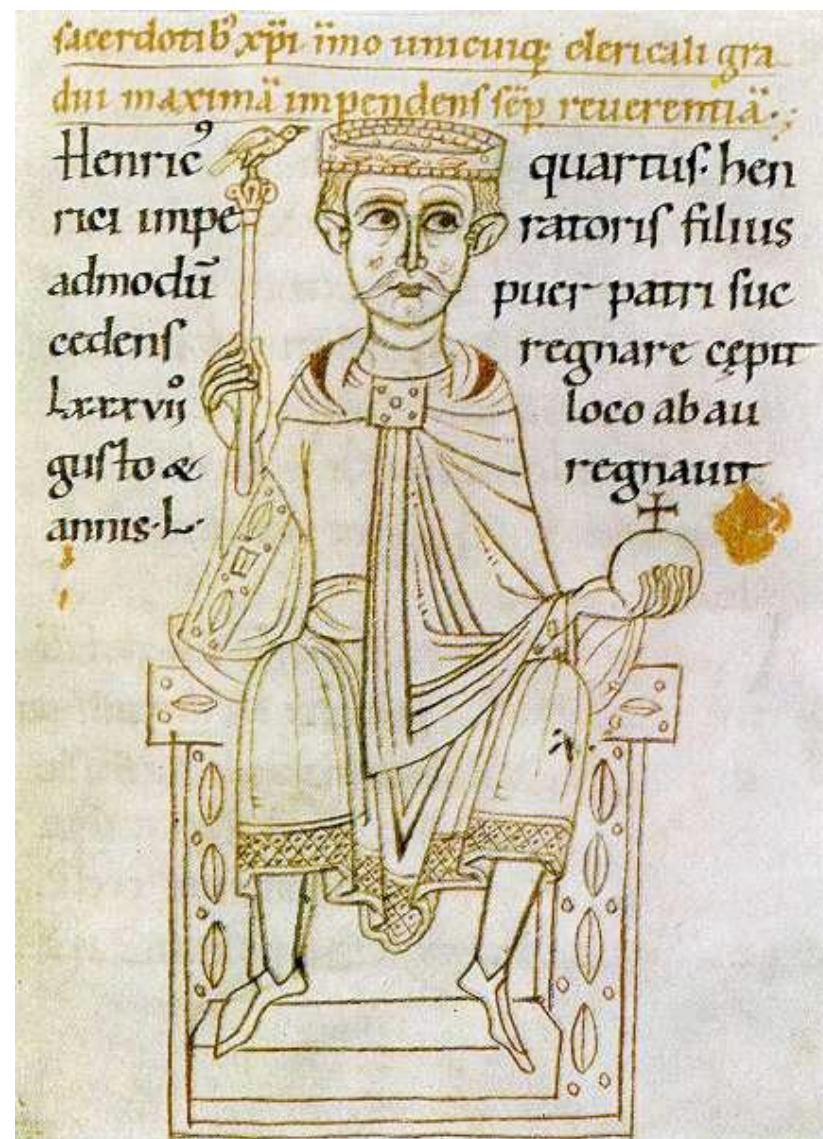 sacerdotib' xp̄i im̄o unicuiq; clericali gra
dui maximā impendens sēp reuerentiā.
Henric' quartus. hen
rici impe ratoris filius
admodū puer patri suc
cedens regnare cępit
Lxxxvijº loco ab au
gusto & regnauit
annis. L.